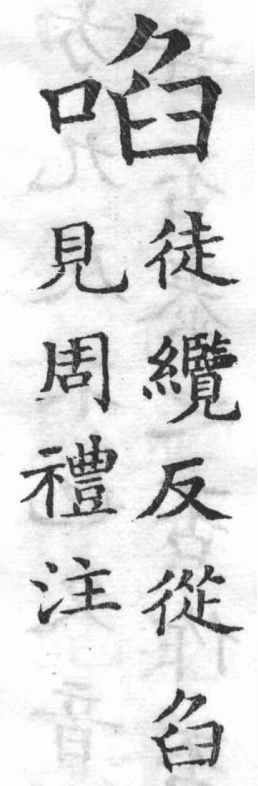 啗
徒纜反從臽
見周禮注